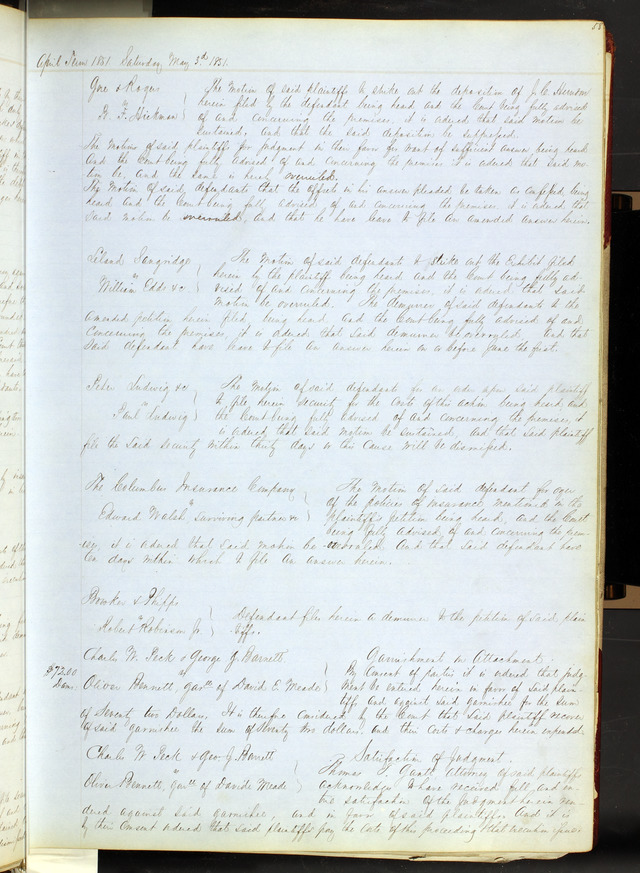 58
April Term 1851 Saturday May 3rd 1851.
Gue & Rogers } The motion of said plaintiffs to strike out the deposition of J. C. Herndon
vs
F. Hickman } herein filed by the defendant being heard and the Court being fully advised
of and concerning the premises, it is ordered that said motion be
sustained, and that the said deposition be suppressed.
The Motion of said plaintiffs for judgment in their favor for want of sufficient answer being heard
And the Court being fully advised of and concerning the premises it is ordered that said mo-
tion be, and the same is hereby overruled.
The Motion of said defendants that the offsets in his answer pleaded, be taken as confessed being
heard and the Court being fully advised of and concerning the premises it is ordered that
said motion be overruled, and that he have leave to file an amended answer herein.
Leland Langridge } The Motion of said defendant to strike out the Exhibit filed
vs
William Edds &c } herein by the plaintiff being heard and the Court being fully ad-
vised of and concerning the premises, it is ordered that said
motion be overruled. The demurrer of said defendants to the
amended petition herein filed, being heard and the Court being fully advised of and
concerning the premises it is ordered, that said demurrer be overruled. And that
said defendant have leave to file an answer herein on or before June the first.
Peter Ludwig &c } The Motion of said defendant for an order upon said plaintiff
vs
Paul Ludwig } to file herein security for the costs of this action being heard, and
the Court being fully advised of and concerning the premises, it
is ordered that said motion be sustained, and that said plaintiff
file the said security within thirty days or this cause will be dismissed.
The Columbus Insurance Company } The Motion of said defendant for oyer
vs
Edward Walsh surviving partner &c } of the policies of insurance mentioned in the
plaintiff's petition being heard, and the Court
being fully advised, of and concerning the prem-
ises, it is ordered that said motion be overruled. And that said defendant have
days within which to file an answer herein.
Bowker & Phipps } Defendant files herein a demurrer to the petition of said plain-
vs
Robert Robinson Jr. } tiffs.
Charles W. Peck & George G. Barnett. } Garnishment in Attachment.
$72.00
Dam.
vs
Oliver Bennett, Garee of David E. Meade } By consent of parties it is ordered that judg-
ment be entered herein in favor of said plain-
tiffs and against said garnishee for the sum
of Seventy two Dollars. It is therefore considered by the Court that said plaintiffs recover
of said garnishee the sum of Seventy two dollars, and their costs & charges herein expended.
Charles W Peck & Geo G. Barnett } Satisfaction of Judgment.
vs
Oliver Bennett, Garee of Davide Meade } Thomas T. Gantt Attorney of said plaintiffs
acknowledges to have received full and en-
tire satisfaction of the judgment herein ren-
dered against said garnishee, and in favor of said plaintiffs. And it is
by their consent ordered that said plaintiffs pay the costs of this proceeding & that execution